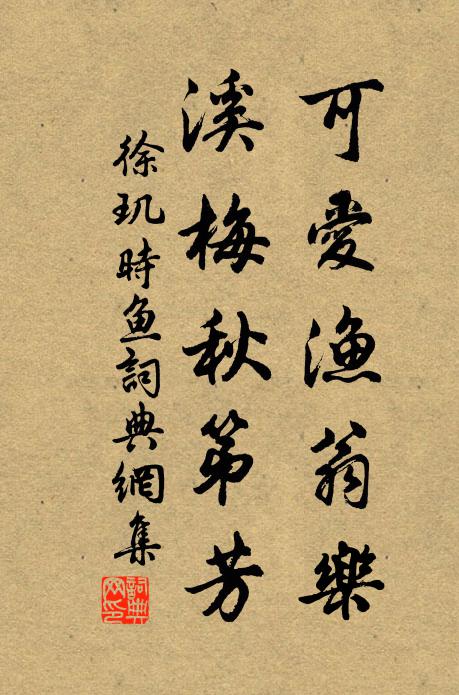 可愛漁翁樂
溪梅秋第芳
徐玑時魚詞典網集
詞典網印